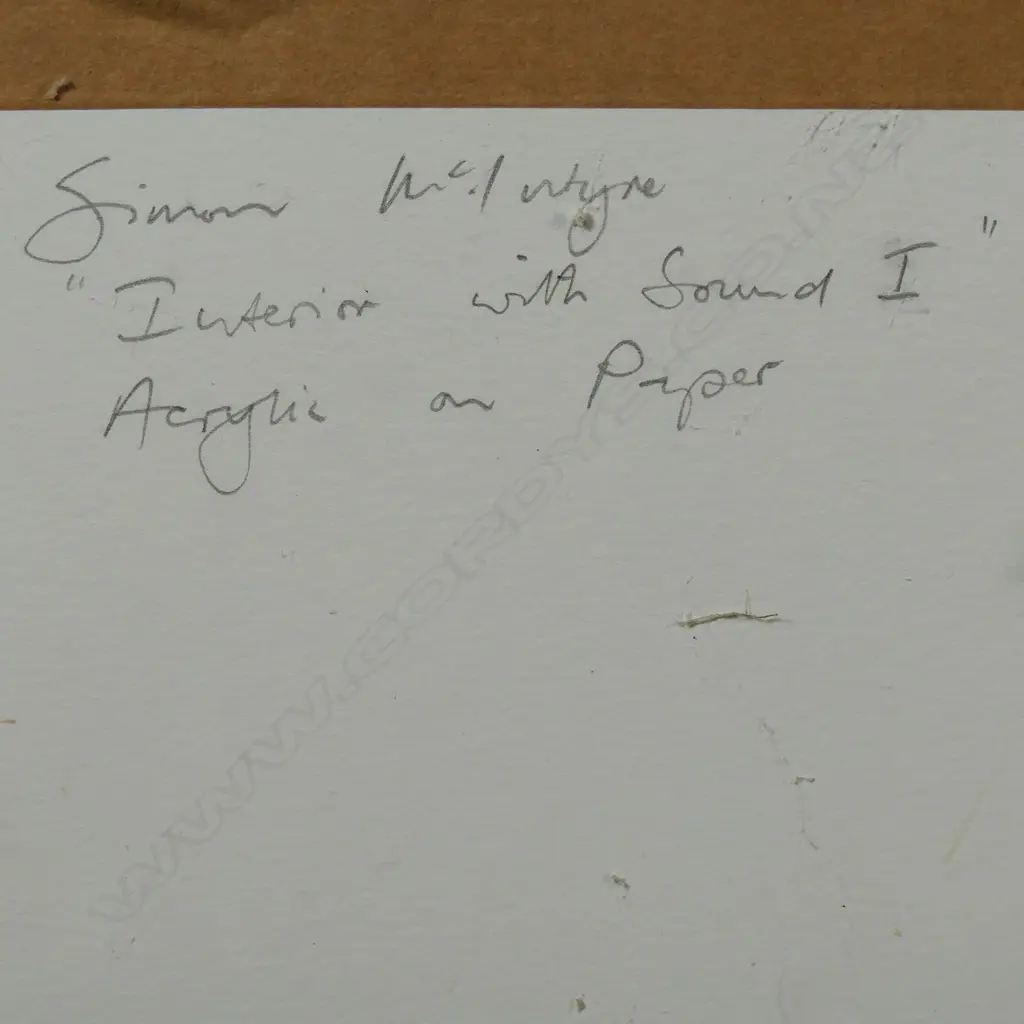 Simon McIntyre
"Interior with Sound I"
Acrylic on Paper